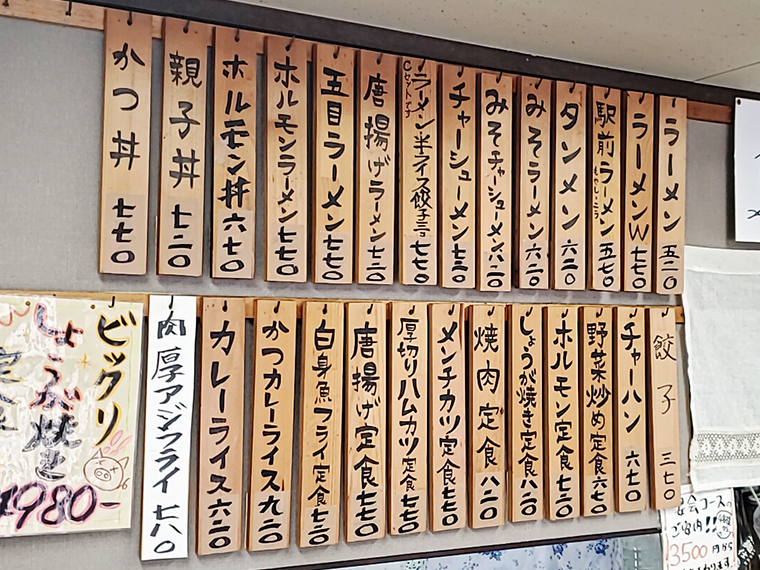 ラーメン 五二〇
ラーメンW 七七〇
駅前ラーメン 五七〇
もやし・ニラ
タンメン 六二〇
みそラーメン 六二〇
みそチャーシューメン 八二〇
チャーシューメン 七二〇
ラーメン半ライス餃子三コ 七七〇
Cセットです
唐揚げラーメン 七二〇
五目ラーメン 七七〇
ホルモンラーメン 七七〇
ホルモン丼 六七〇
親子丼 七二〇
かつ丼 七七〇
餃子 三七〇
チャーハン 六七〇
野菜炒め定食 六七〇
ホルモン定食 七二〇
しょうが焼き定食 八二〇
焼肉定食 八二〇
メンチカツ定食 七七〇
厚切りハムカツ定食 七七〇
唐揚げ定食 七七〇
白身魚フライ定食 七二〇
かつカレーライス 九二〇
カレーライス 六二〇
肉厚アジフライ 七八〇
ビックリ
しょうが焼き
980-
宴会コースの
ご案内!!
3500円から